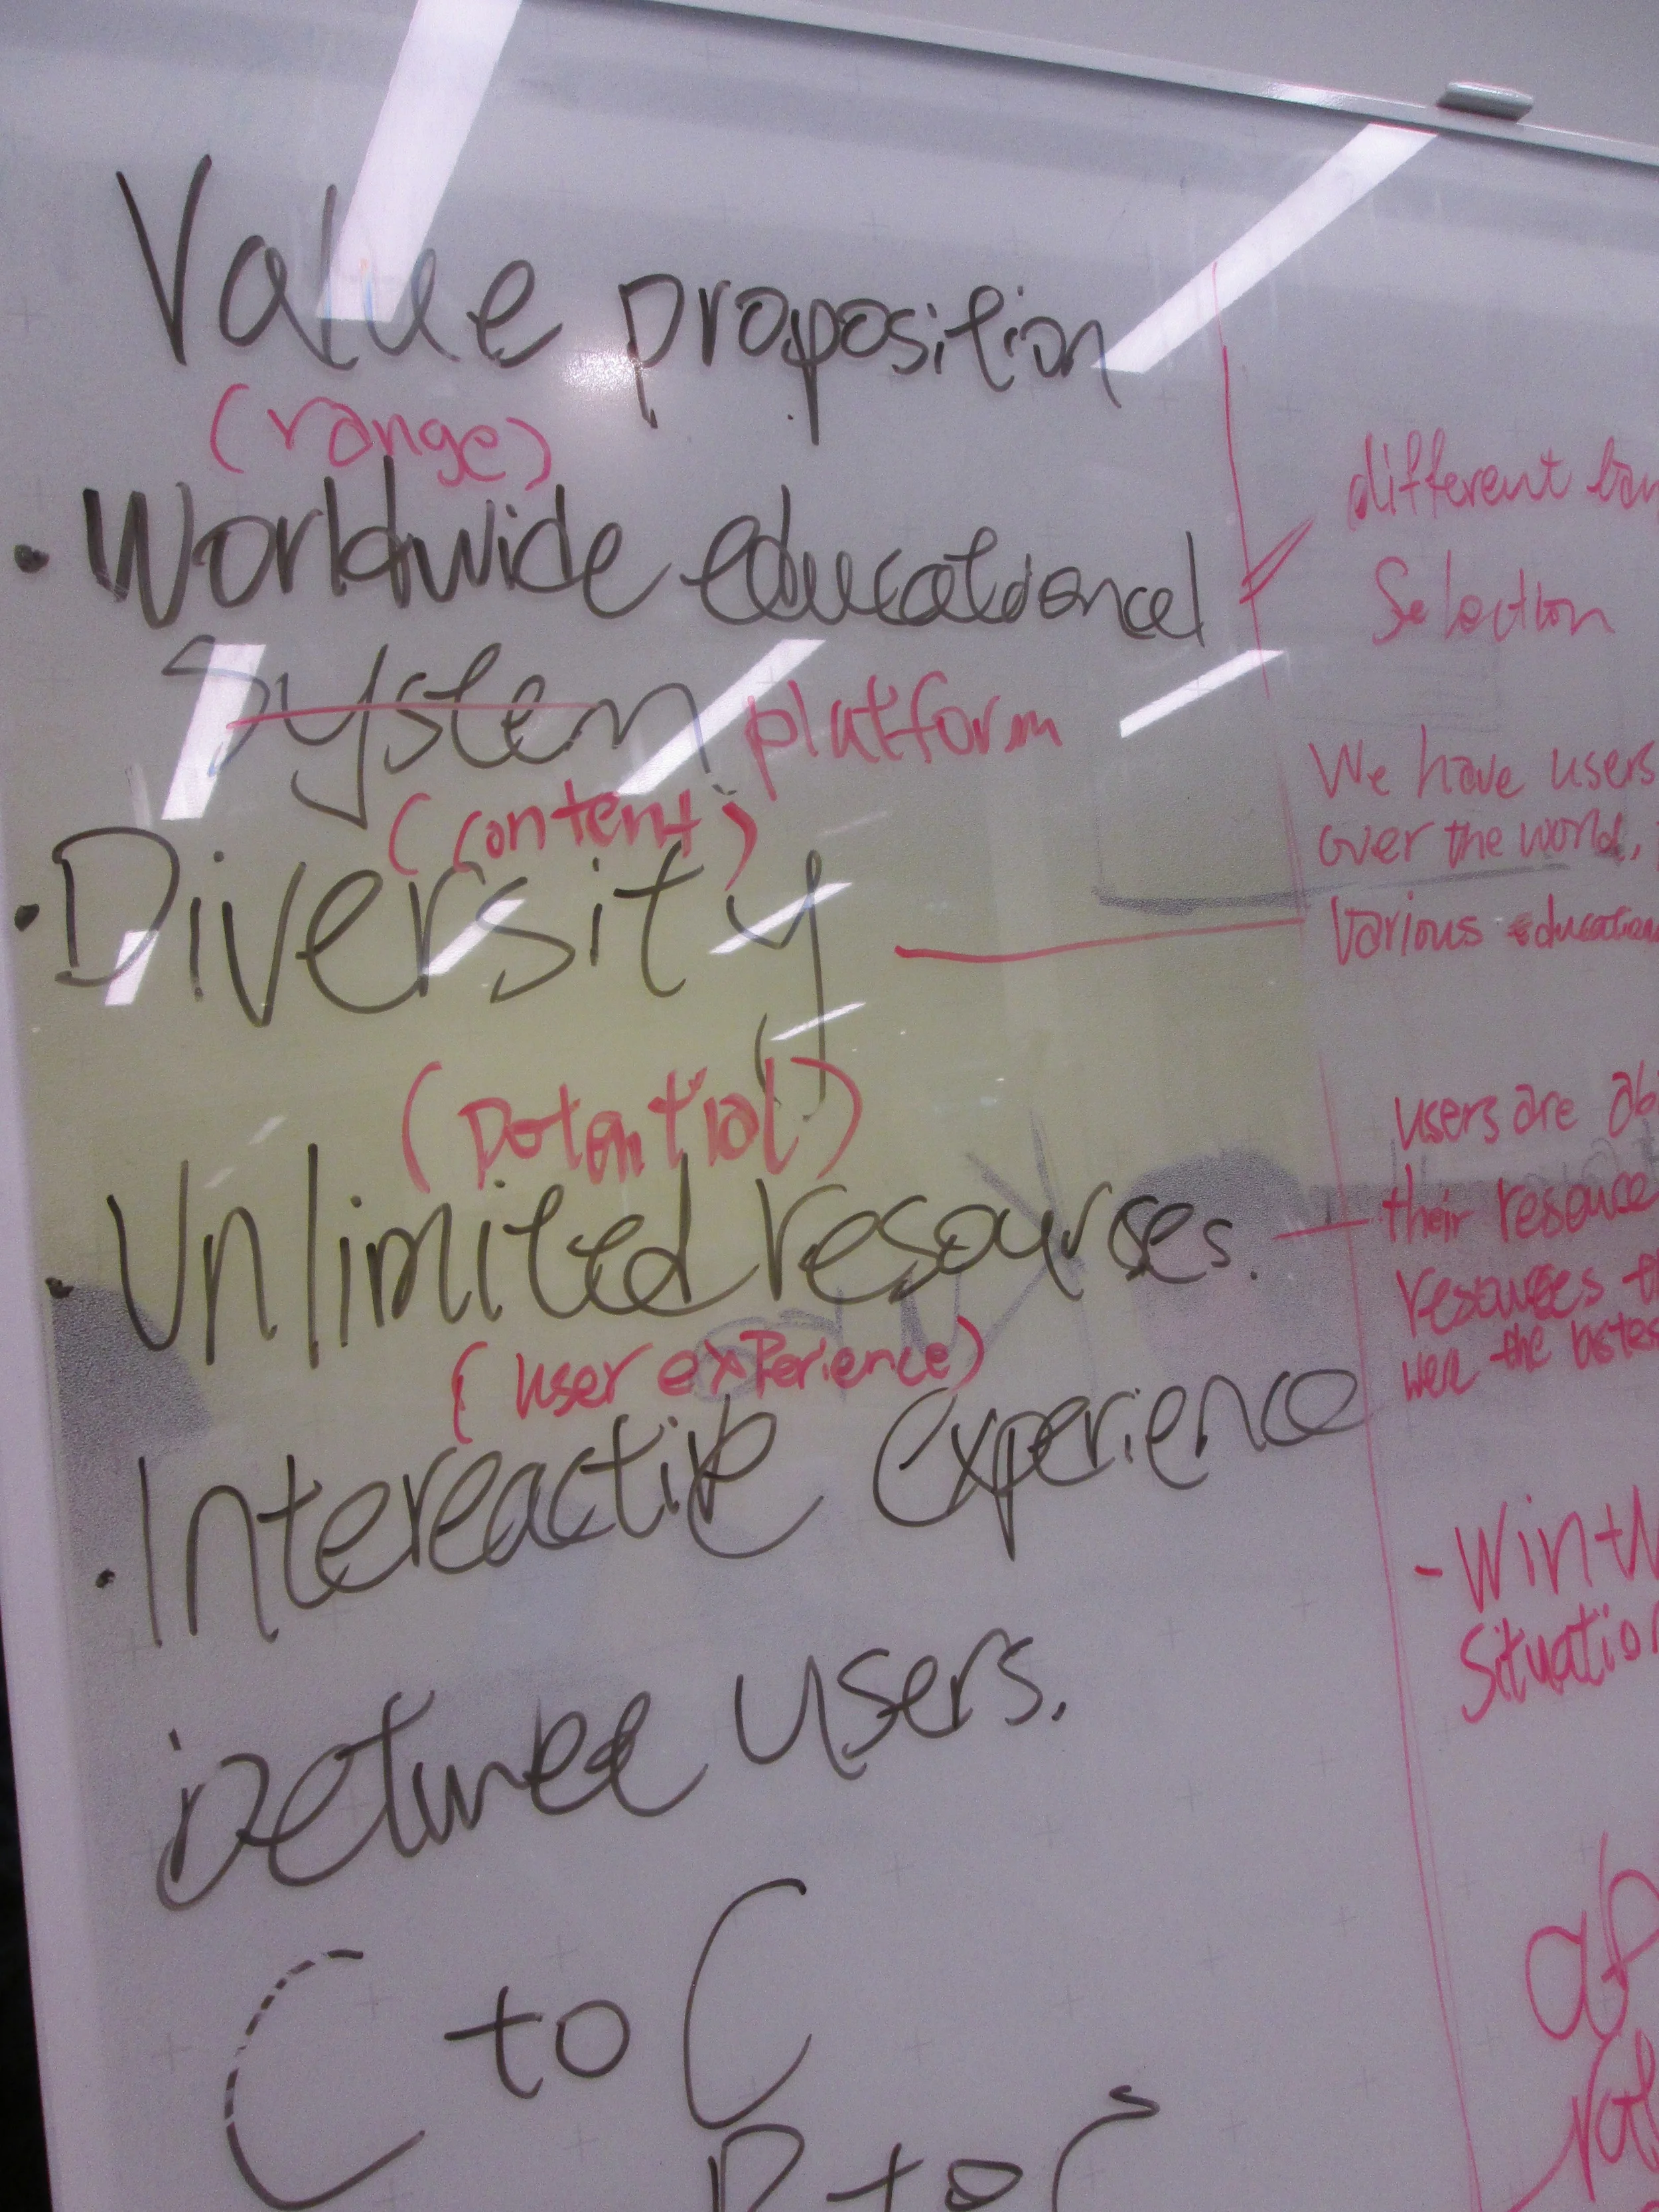 Value proposition
(range)
• Worldwide educational
System platform
(content)
• Diversity
(Potential)
• Unlimited resourses.
(user experience)
• Intereactive experience
betwee users.
C to C
to C
different
Selection
We have users
over the world,
various
users are
their resource
resources
the
- Win